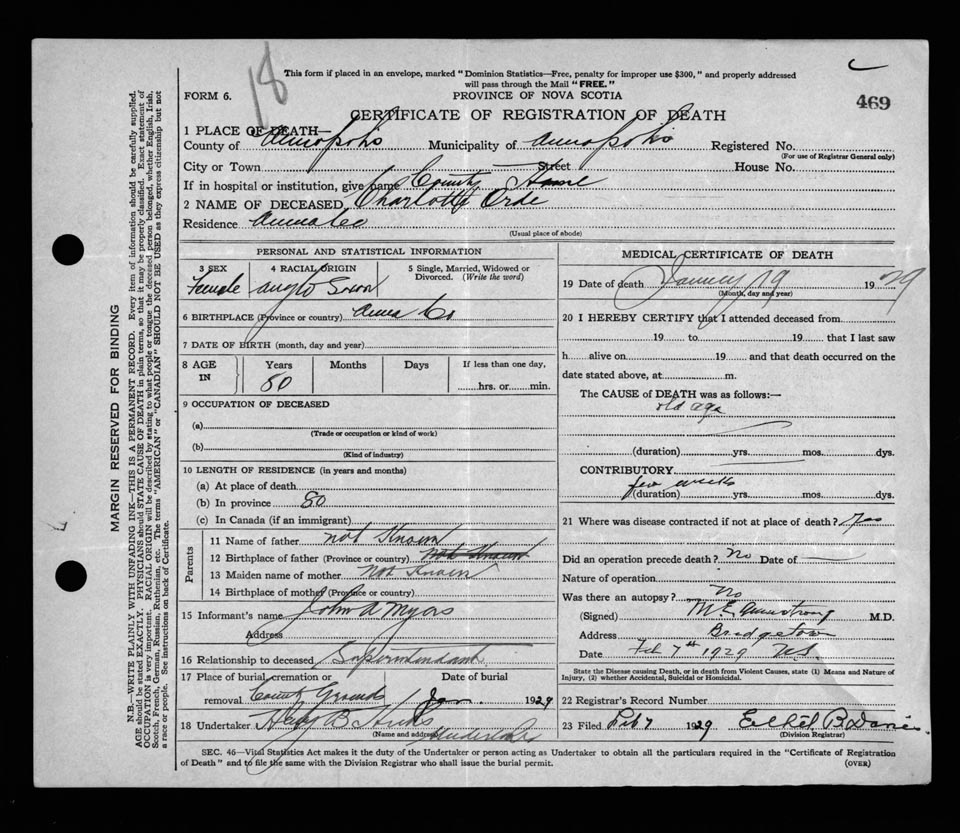 18
This form if placed in an envelope, marked "Dominion Statistics—Free, penalty for improper use $300," and properly addressed
will pass through the Mail "FREE."
FORM 6.
PROVINCE OF NOVA SCOTIA
469
CERTIFICATE OF REGISTRATION OF DEATH
1 PLACE OF DEATH—
County of Annapolis Municipality of Annapolis Registered No.
(For use of Registrar General only)
City or Town Street House No.
If in hospital or institution, give name County Home
2 NAME OF DECEASED Charlotte Orde
Residence Anna Co
(Usual place of abode)
PERSONAL AND STATISTICAL INFORMATION
3 SEX 4 RACIAL ORIGIN 5 Single, Married, Widowed or
Divorced. (Write the word)
Female Anglo Saxon
6 BIRTHPLACE (Province or country) Anna Co
7 DATE OF BIRTH (month, day and year)
8 AGE IN Years Months Days If less than one day,
80 hrs. or min.
9 OCCUPATION OF DECEASED
(a)
(Trade or occupation or kind of work)
(b)
(Kind of industry)
10 LENGTH OF RESIDENCE (in years and months)
(a) At place of death
(b) In province 80
(c) In Canada (if an immigrant)
Parents
11 Name of father not Known
12 Birthplace of father (Province or country) not Known
13 Maiden name of mother Not Known
14 Birthplace of mother (Province or country)
15 Informant's name John A Myers
Address
16 Relationship to deceased Superintendant
17 Place of burial, cremation or Date of burial
removal County Grounds Jan. 1929
18 Undertaker B Hicks
(Name and address) Undertaker
MEDICAL CERTIFICATE OF DEATH
19 Date of death January 19 1929
(Month, day and year)
20 I HEREBY CERTIFY that I attended deceased from
19 to 19 that I last saw
h alive on 19 and that death occurred on the
date stated above, at m.
The CAUSE of DEATH was as follows:—
old age
(duration) yrs. mos. dys.
CONTRIBUTORY
few weeks
(duration) yrs. mos. dys.
21 Where was disease contracted if not at place of death? Yes
Did an operation precede death? No Date of
Nature of operation
Was there an autopsy? No
(Signed) M E Armstrong M.D.
Address Bridgetown
Date Feb 7th 1929 N.S
State the Disease causing Death, or in death from Violent Causes, state (1) Means and Nature of
Injury, (2) whether Accidental, Suicidal or Homicidal.
22 Registrar's Record Number
23 Filed Feb 7 1929 Ethel B Davies
(Division Registrar)
SEC. 46—Vital Statistics Act makes it the duty of the Undertaker or person acting as Undertaker to obtain all the particulars required in the "Certificate of Registration
of Death" and to file the same with the Division Registrar who shall issue the burial permit.
(OVER)
MARGIN RESERVED FOR BINDING
N.B.—WRITE PLAINLY WITH UNFADING INK—THIS IS A PERMANENT RECORD. Every item of information should be carefully supplied.
AGE should be stated EXACTLY. PHYSICIANS should STATE CAUSE OF DEATH in plain terms, so that it may be properly classified. Exact statement of
OCCUPATION is very important. RACIAL ORIGIN will be described by stating to what people or tongue the deceased person belonged, whether English, Irish,
Scotch, French, German, Russian, Ruthenian, etc. The terms "AMERICAN" or "CANADIAN" SHOULD NOT BE USED as they express citizenship but not
a race or people. See instructions on back of Certificate.